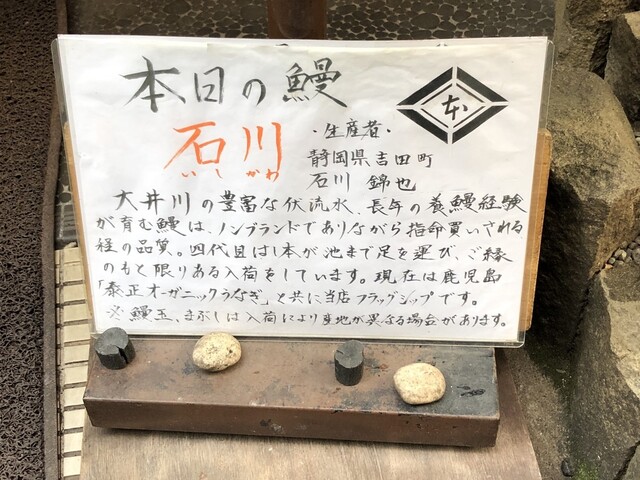 本日の鰻
本
石川
いしかわ
・生産者・
静岡県吉田町
石川 錦也
大井川の豊富な伏流水、長年の養鰻経験
が育む鰻は、ノンブランドでありながら指印買いされる
程の品質。四代目はし本が池まで足を運び、ご縁
のもと限りある入荷をしています。現在は鹿児島
「泰正オーガニックうなぎ」と共に当店フラッグシップです。
※鰻玉、まぶしは入荷により産地が異なる場合があります。